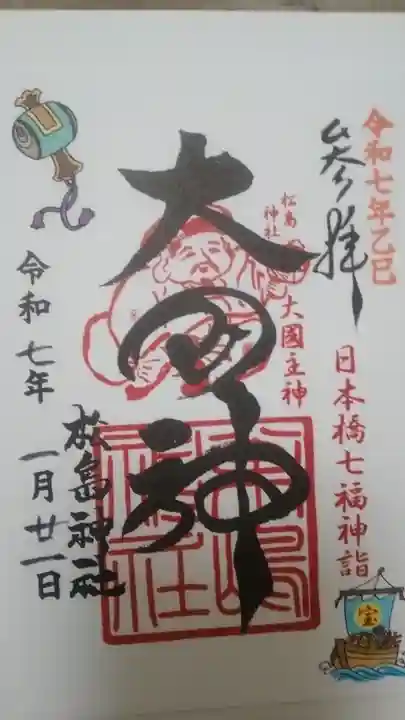 令和七年乙巳
参拝
日本橋七福神詣
宝
松島
神社
大國主神
大国神
松島神社
松島神社
令和七年
一月廿一日